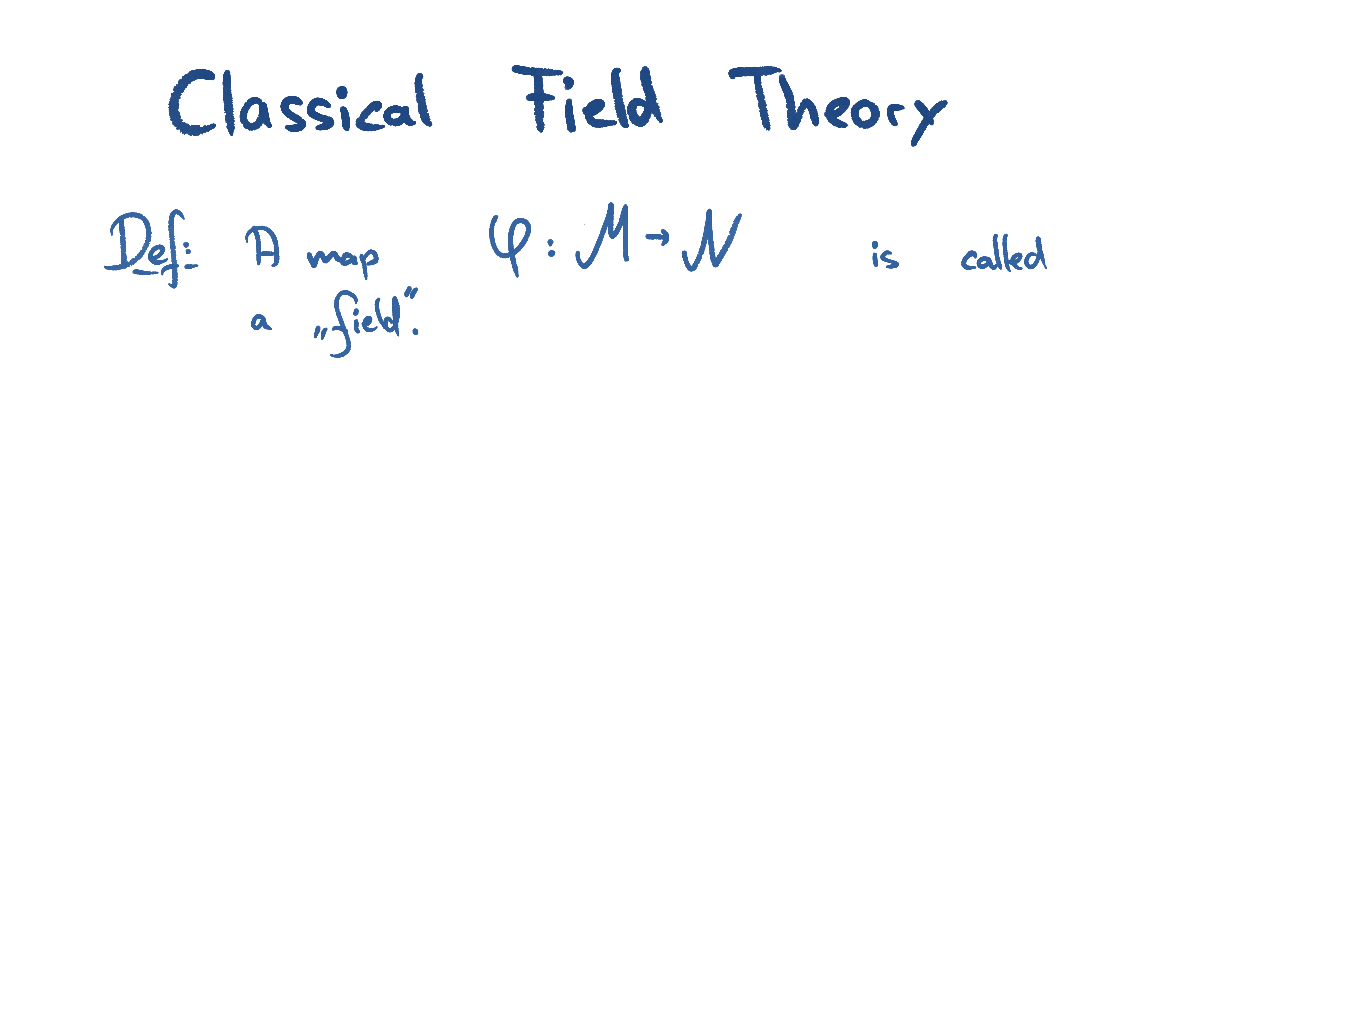 Classical Field Theory
Def: A map φ: M → N is called
a „field".